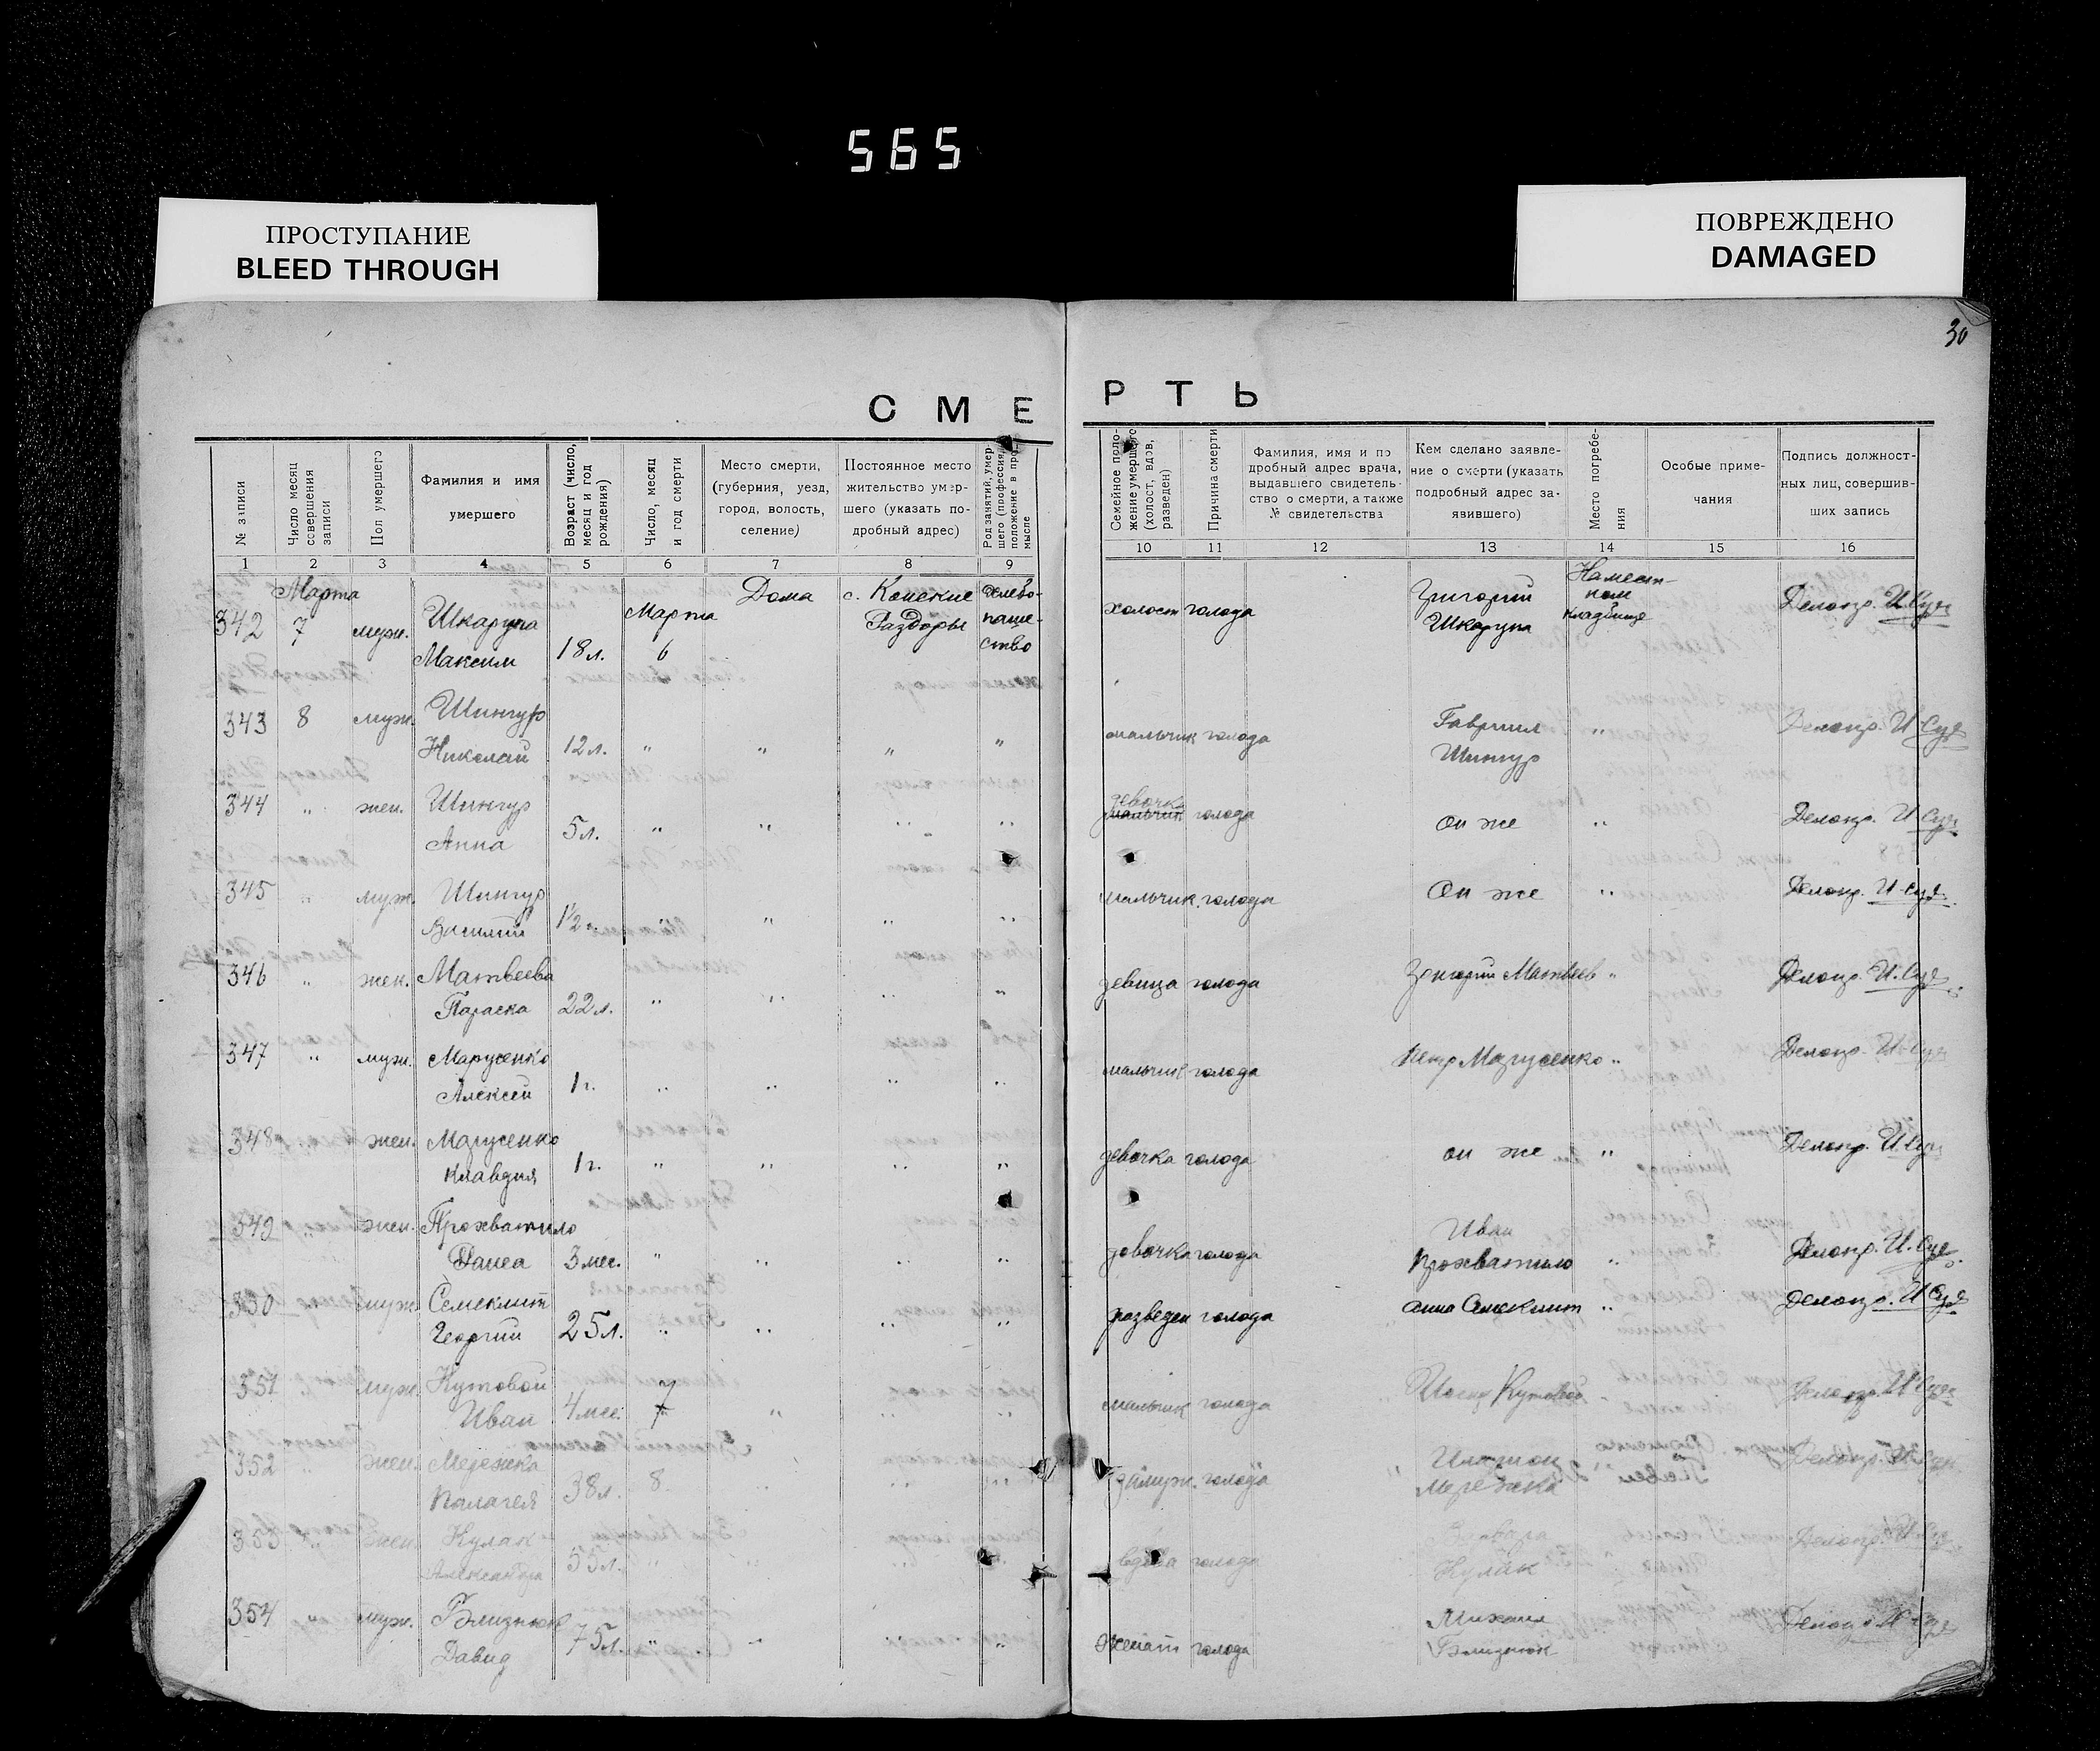 565
ПРОСТУПАНИЕ
BLEED THROUGH
ПОВРЕЖДЕНО
DAMAGED
30
СМЕРТЬ
№ записи
Число месяц совершения записи
Пол умершего
Фамилия и имя умершего
Возраст (число, месяц и год рождения)
Число, месяц и год смерти
Место смерти, (губерния, уезд, город, волость, селение)
Постоянное место жительство умершего (указать подробный адрес)
Род занятий, умершего (профессия, положение в промысле
Семейное положение умершего (холост, вдов, разведен)
Причина смерти
Фамилия, имя и подробный адрес врача, выдавшего свидетельство о смерти, а также № свидетельства
Кем сделано заявление о смерти (указать подробный адрес заявившего)
Место погребения
Особые примечания
Подпись должностных лиц, совершивших запись
1 2 3 4 5 6 7 8 9 10 11 12 13 14 15 16
Марта Марта Дома с. Конские Раздоры хлебопашество
342 7 муж. Шкарупа Максим 18 л. 6 холост голода Григорий Шкарупа На местном кладбище Делопр.
343 8 муж. Шингур Николай 12 л. " " " " мальчик голода Гавриил Шингур " Делопр.
344 " жен. Шингур Анна 5 л. " " " " девочка голода он же " Делопр.
345 " муж. Шингур Василий 1½ г. " " " " мальчик голода Он же " Делопр.
346 " жен. Матвеева Параска 22 л. " " " " девица голода Григорий Матвеев " Делопр.
347 " муж. Марусенко Алексей 1 г. " " " " мальчик голода Петр Марусенко " Делопр.
348 жен. Марусенко Клавдия 1 г. " " " " девочка голода он же " Делопр.
349 жен. Прохватило 3 мес. " " " " девочка голода Иван Прохватило " Делопр.
350 муж. Семеклит Георгий 25 л. " " " " разведен голода Анна Семеклит " Делопр.
351 муж. Кутовой Иван 4 мес. 7 " " " мальчик голода Кутовой Делопр.
352 " жен. Мережка Палагея 38 л. 8 замуж. голода Мережка Делопр.
353 " жен. Кулак Александра 55 л. " вдова голода Варвара Кулак Делопр.
354 " муж. Близнюк Давид 75 л. " " " " женат голода Михаил Близнюк Делопр.